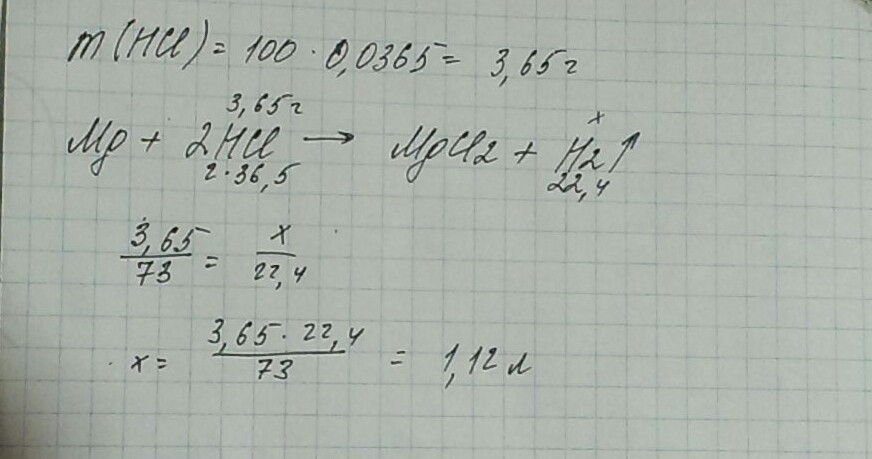 m(HCl) = 100 · 0,0365 = 3,65 г
3,65 г x
Mg + 2HCl → MgCl2 + H2↑
2·36,5 22,4
3,65 / 73 = x / 22,4
x = 3,65 · 22,4 / 73 = 1,12 л